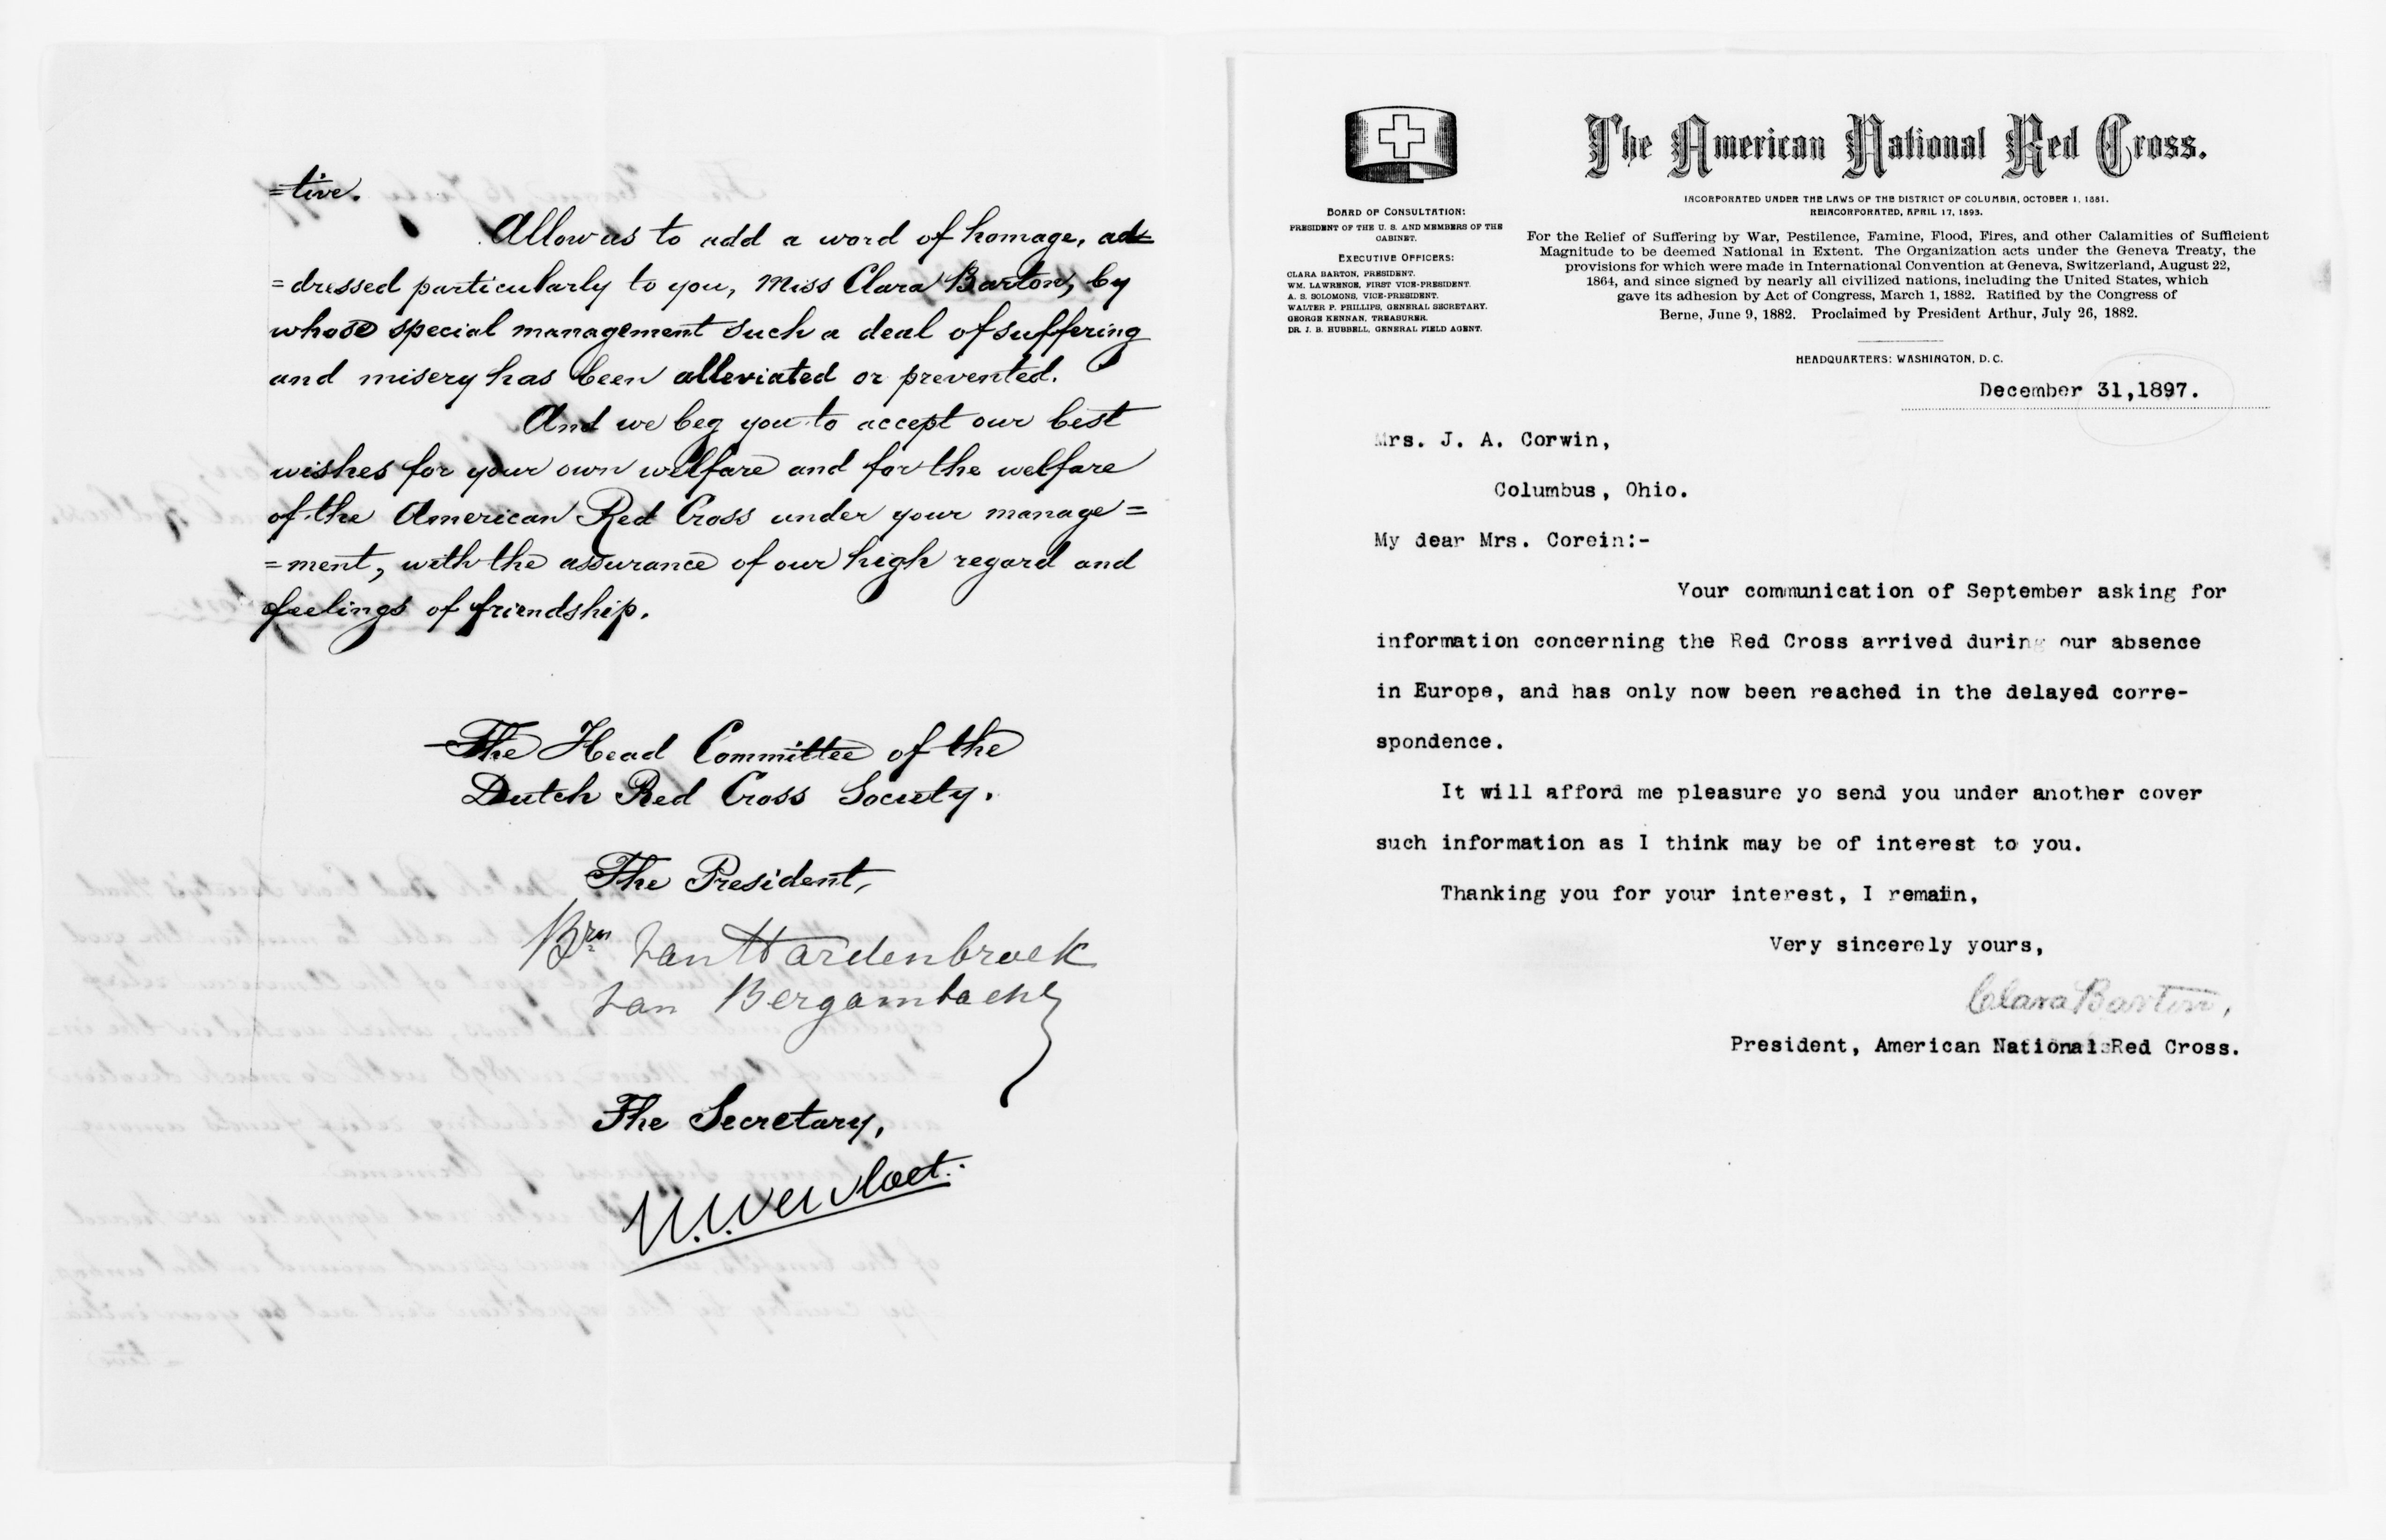 =tive.
Allow us to add a word of homage, ad=
=dressed particularly to you, Miss Clara Barton, by
whose special management such a deal of suffering
and misery has been alleviated or prevented.
And we beg you to accept our best
wishes for your own welfare and for the welfare
of the American Red Cross under your manage=
=ment, with the assurance of our high regard and
feelings of friendship.
The Head Committee of the
Dutch Red Cross Society.
The President,
Brn van Hardenbroek
van Bergambacht
The Secretary,
The American National Red Cross.
INCORPORATED UNDER THE LAWS OF THE DISTRICT OF COLUMBIA, OCTOBER 1, 1881.
REINCORPORATED, APRIL 17, 1893.
BOARD OF CONSULTATION:
PRESIDENT OF THE U. S. AND MEMBERS OF THE
CABINET.
EXECUTIVE OFFICERS:
CLARA BARTON, PRESIDENT.
WM. LAWRENCE, FIRST VICE-PRESIDENT.
A. S. SOLOMONS, VICE-PRESIDENT.
WALTER P. PHILLIPS, GENERAL SECRETARY.
GEORGE KENNAN, TREASURER.
DR. J. B. HUBBELL, GENERAL FIELD AGENT.
For the Relief of Suffering by War, Pestilence, Famine, Flood, Fires, and other Calamities of Sufficient
Magnitude to be deemed National in Extent. The Organization acts under the Geneva Treaty, the
provisions for which were made in International Convention at Geneva, Switzerland, August 22,
1864, and since signed by nearly all civilized nations, including the United States, which
gave its adhesion by Act of Congress, March 1, 1882. Ratified by the Congress of
Berne, June 9, 1882. Proclaimed by President Arthur, July 26, 1882.
HEADQUARTERS: WASHINGTON, D. C.
December 31,1897.
Mrs. J. A. Corwin,
Columbus, Ohio.
My dear Mrs. Corein:-
Your communication of September asking for
information concerning the Red Cross arrived during our absence
in Europe, and has only now been reached in the delayed corre-
spondence.
It will afford me pleasure yo send you under another cover
such information as I think may be of interest to you.
Thanking you for your interest, I remain,
Very sincerely yours,
Clara Barton,
President, American National Red Cross.